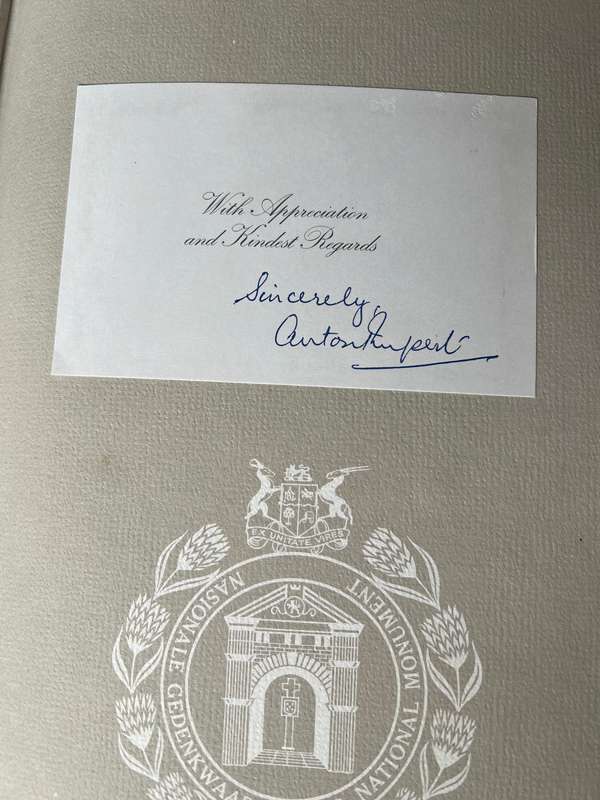 With Appreciation
and Kindest Regards
Sincerely,
Anton Rupert
EX UNITATE VIRES
NASIONALE GEDENKWAAR
NATIONAL MONUMENT